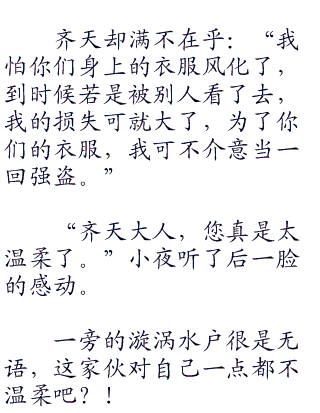 齐天却满不在乎：“我
怕你们身上的衣服风化了，
到时候若是被别人看了去，
我的损失可就大了，为了你
们的衣服，我可不介意当一
回强盗。”
“齐天大人，您真是太
温柔了。”小夜听了后一脸
的感动。
一旁的漩涡水户很是无
语，这家伙对自己一点都不
温柔吧？！